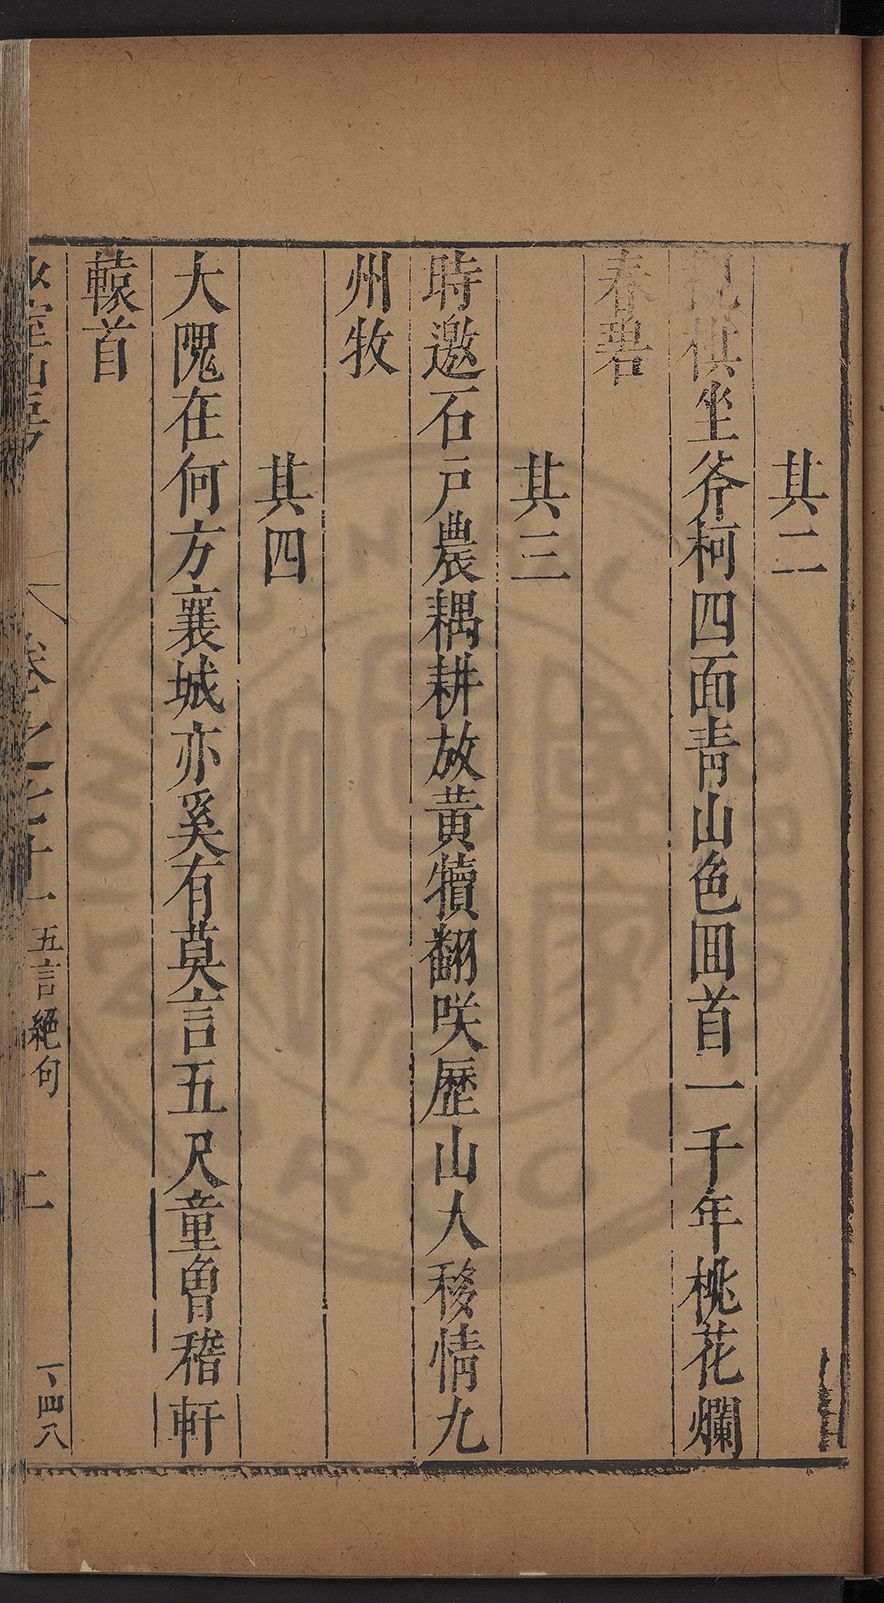 其二
觀棋坐斧柯四面青山色囬首一千年桃花爛
春碧
其三
時邀石戸農耦耕放黃犢翻咲歷山人移情九
州牧
其四
大隗在何方襄城亦奚有莫言五尺童曾稽軒
轅首
卷之七十一 五言絕句 二